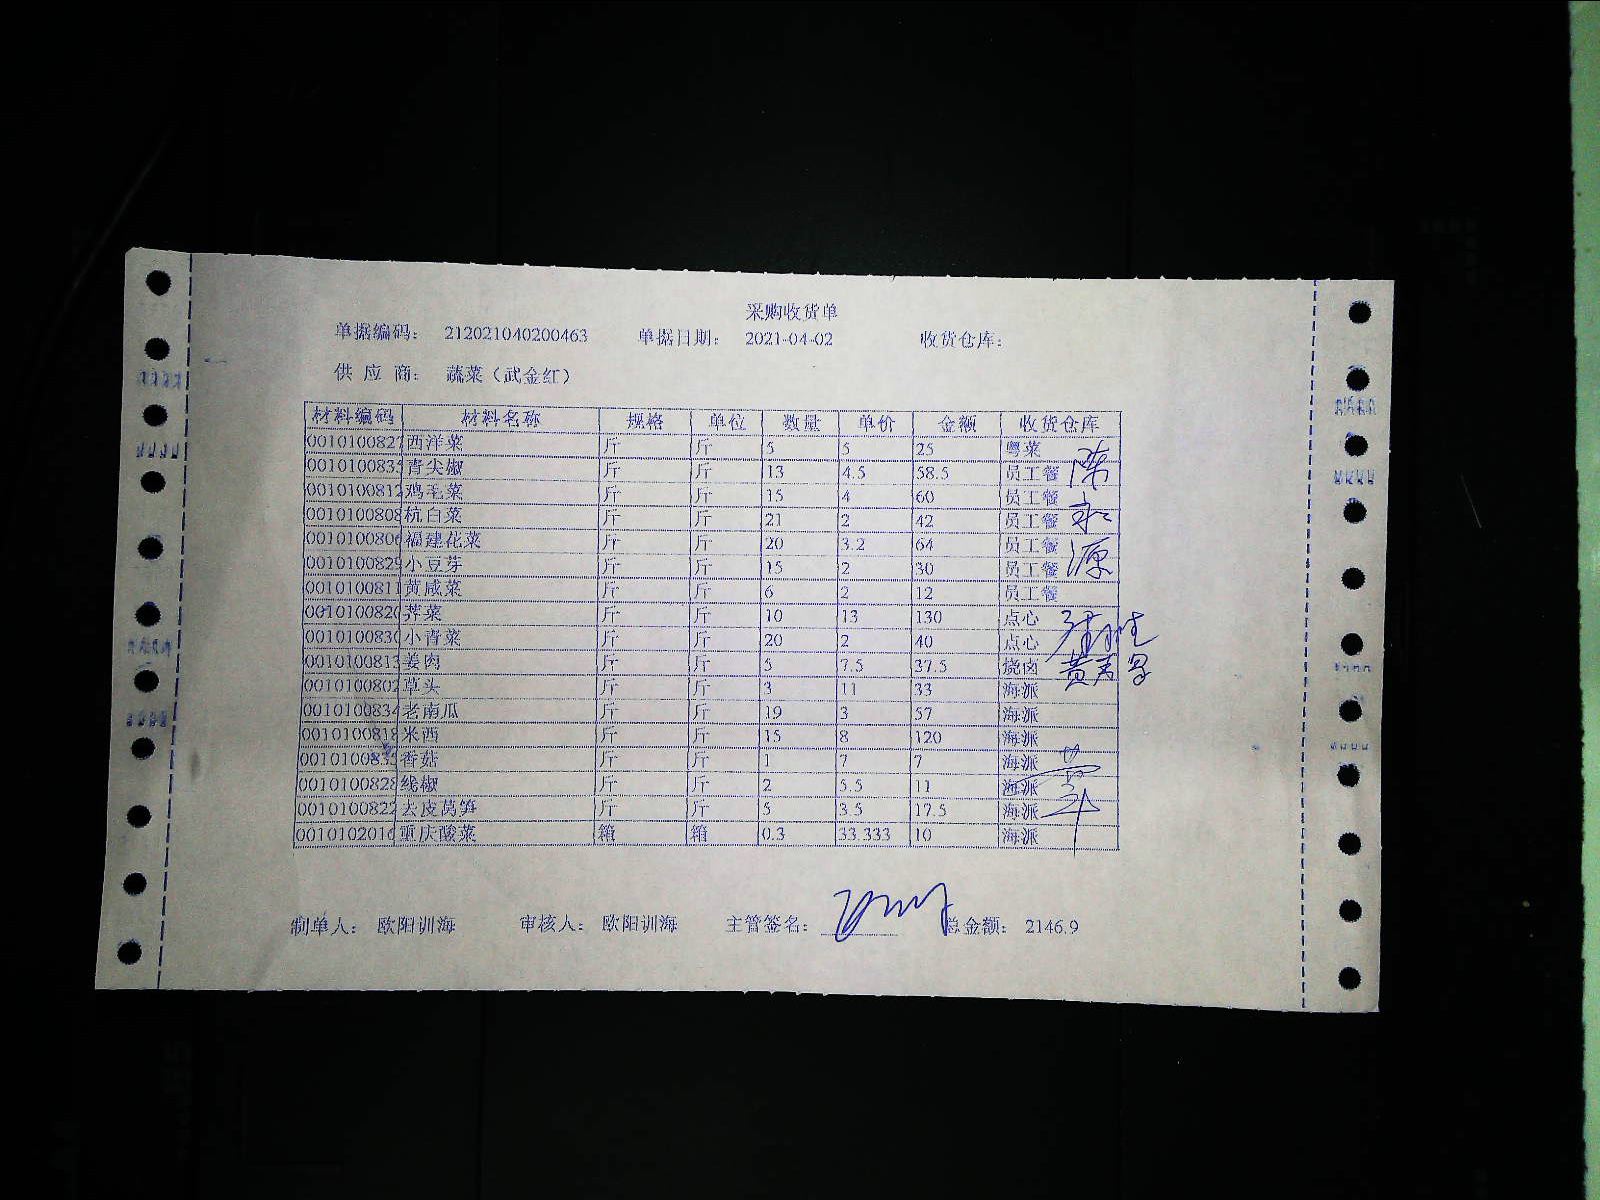 采购收货单
单据编码： 212021040200463 单据日期： 2021-04-02 收货仓库：
供 应 商： 蔬菜（武金红）
材料编码 材料名称 规格 单位 数量 单价 金额 收货仓库
0010100827 西洋菜 斤 斤 5 5 25 粤菜
001010083 青尖椒 斤 斤 13 4.5 58.5 员工餐
0010100812 鸡毛菜 斤 斤 15 4 60 员工餐
0010100808 杭白菜 斤 斤 21 2 42 员工餐
001010080 福建花菜 斤 斤 20 3.2 64 员工餐
0010100829 小豆芽 斤 斤 15 2 30 员工餐
0010100811 黄咸菜 斤 斤 6 2 12 员工餐
001010082 荠菜 斤 斤 10 13 130 点心
001010083 小青菜 斤 斤 20 2 40 点心
0010100813 姜肉 斤 斤 5 7.5 37.5 烧卤
0010100802 草头 斤 斤 3 11 33 海派
0010100834 老南瓜 斤 斤 19 3 57 海派
0010100818 米西 斤 斤 15 8 120 海派
001010083 香菇 斤 斤 1 7 7 海派
0010100828 线椒 斤 斤 2 5.5 11 海派
0010100822 去皮莴笋 斤 斤 5 3.5 17.5 海派
001010201 重庆酸菜 箱 箱 0.3 33.333 10 海派
陈
源
制单人： 欧阳训海 审核人： 欧阳训海 主管签名： 总金额： 2146.9